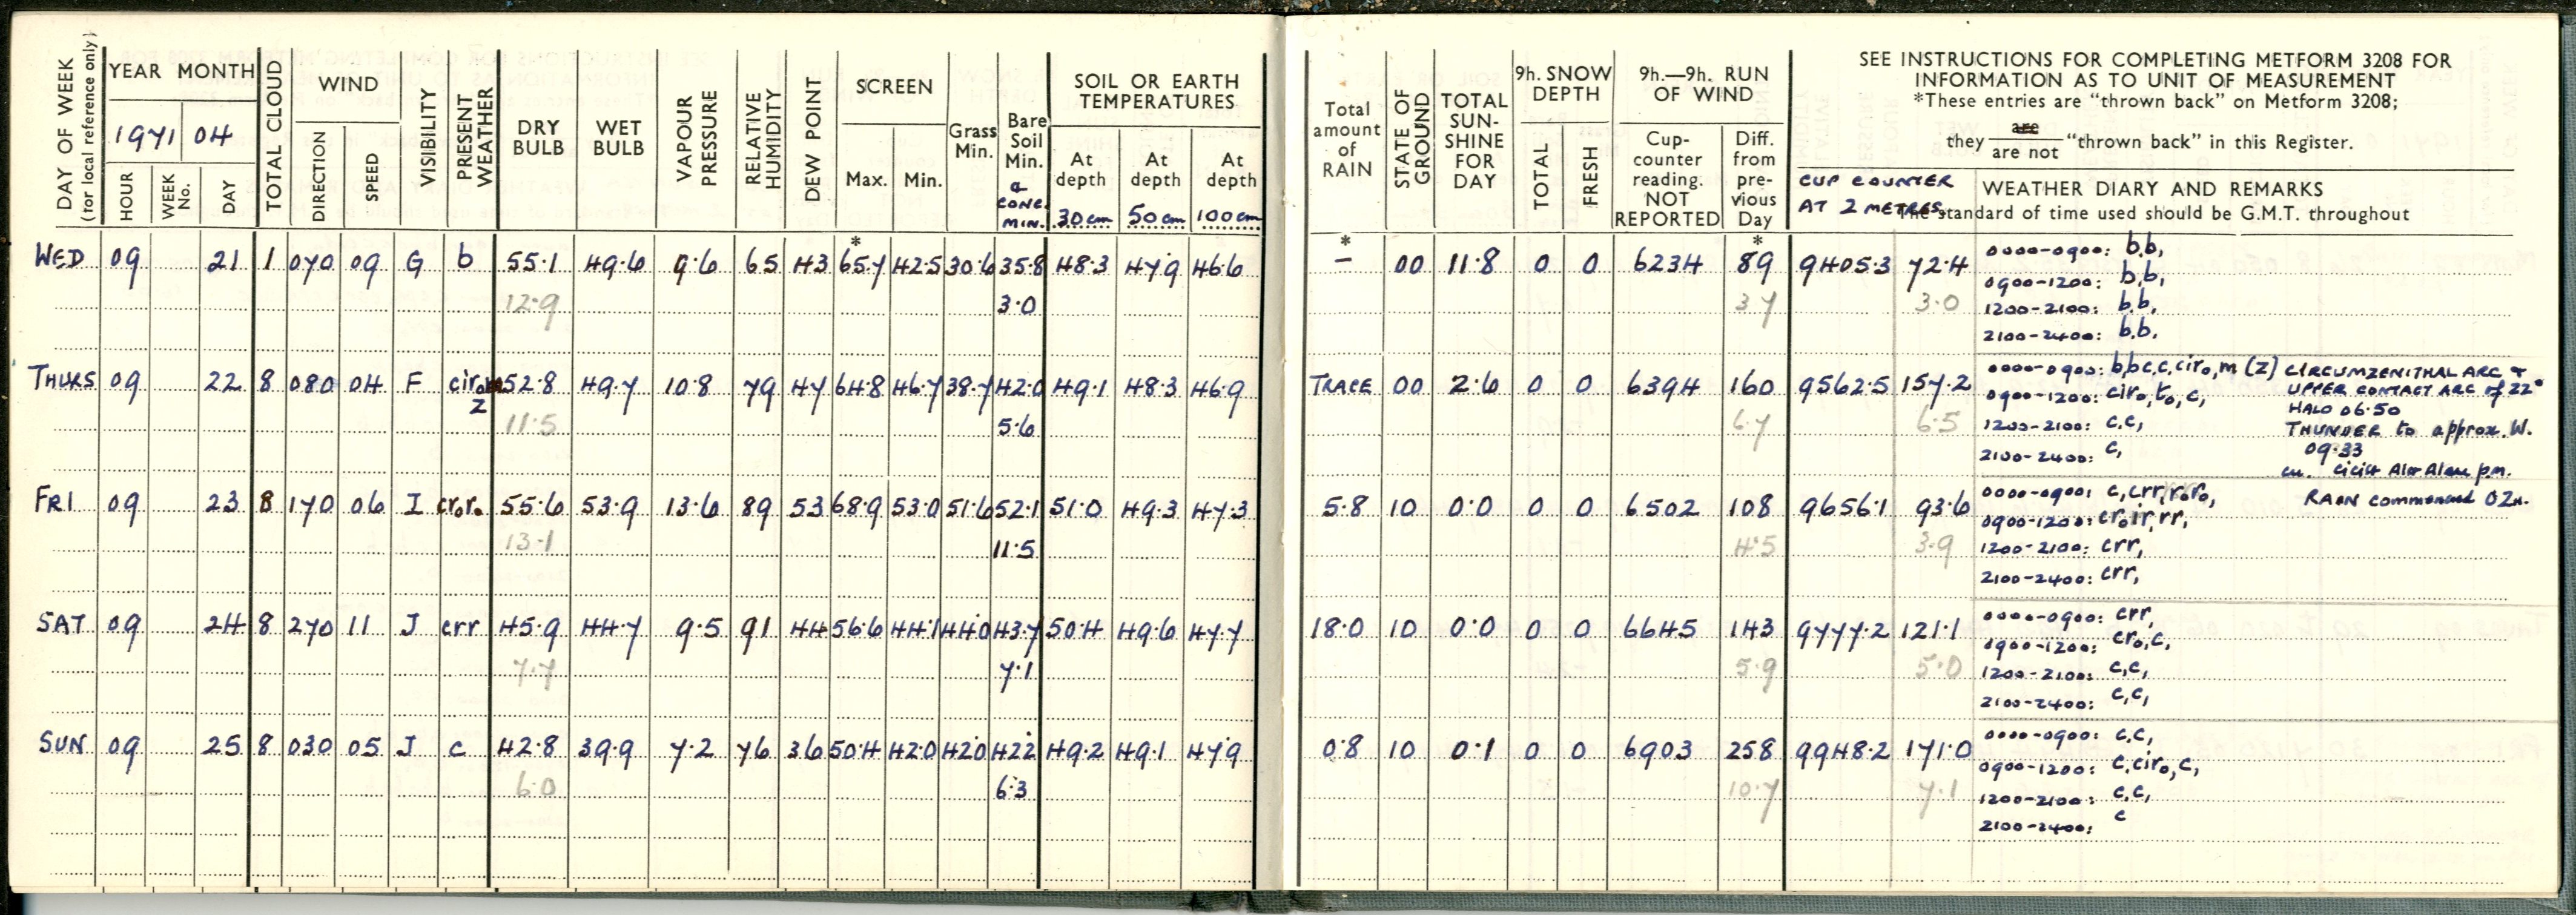 DAY OF WEEK
(for local reference only)
YEAR MONTH
1971 04
HOUR
WEEK No.
DAY
TOTAL CLOUD
WIND
DIRECTION
SPEED
VISIBILITY
PRESENT WEATHER
DRY BULB
WET BULB
VAPOUR PRESSURE
RELATIVE HUMIDITY
DEW POINT
SCREEN
Max. Min.
Grass Min.
Bare Soil Min.
a
CONC. MIN.
SOIL OR EARTH TEMPERATURES
At depth 30 cm
At depth 50 cm
At depth 100 cm
Total amount of RAIN
STATE OF GROUND
TOTAL SUN-SHINE FOR DAY
9h. SNOW DEPTH
TOTAL
FRESH
9h.—9h. RUN OF WIND
Cup-counter reading. NOT REPORTED
Diff. from pre-vious Day
SEE INSTRUCTIONS FOR COMPLETING METFORM 3208 FOR
INFORMATION AS TO UNIT OF MEASUREMENT
*These entries are "thrown back" on Metform 3208;
they are / are not "thrown back" in this Register.
CUP COUNTER
AT 2 METRES
WEATHER DIARY AND REMARKS
The standard of time used should be G.M.T. throughout
* * *
WED 09 21 1 070 09 G b 55.1 49.6 9.6 65 43 65.7 42.5 30.6 35.8 48.3 47.9 46.6 – 00 11.8 0 0 6234 89 9405.3 72.4 0000-0900: b,b,
0900-1200: b,b,
12.9 3.0 3.7 3.0 1200-2100: b,b,
2100-2400: b,b,
THURS 09 22 8 080 04 F ciro 52.8 49.7 10.8 79 47 64.8 46.7 38.7 42.0 49.1 48.3 46.9 TRACE 00 2.6 0 0 6394 160 9562.5 157.2 0000-0900: b,bc,c,ciro,m (z) CIRCUMZENITHAL ARC +
z 0900-1200: ciro,to,c, UPPER CONTACT ARC of 22°
HALO 06.50
11.5 5.6 6.7 6.5 1200-2100: c,c, THUNDER to approx. W.
2100-2400: c, 09.33
cu. p.m.
FRI 09 23 8 170 06 I croro 55.6 53.9 13.6 89 53 68.9 53.0 51.6 52.1 51.0 49.3 47.3 5.8 10 0.0 0 0 6502 108 9656.1 93.6 0000-0900: c,crr,roro, RAIN commenced 02h.
0900-1200: cro,ir,rr,
13.1 11.5 4.5 3.9 1200-2100: crr,
2100-2400: crr,
SAT 09 24 8 270 11 J crr 45.9 44.7 9.5 91 44 56.6 44.1 44.0 43.7 50.4 49.6 47.7 18.0 10 0.0 0 0 6645 143 9777.2 121.1 0000-0900: crr,
0900-1200: cro,c,
7.7 7.1 5.9 5.0 1200-2100: c,c,
2100-2400: c,c,
SUN 09 25 8 030 05 J c 42.8 39.9 7.2 76 36 50.4 42.0 42.0 42.2 49.2 49.1 47.9 0.8 10 0.1 0 0 6903 258 9948.2 171.0 0000-0900: c,c,
0900-1200: c,ciro,c,
6.0 6.3 10.7 7.1 1200-2100: c,c,
2100-2400: c